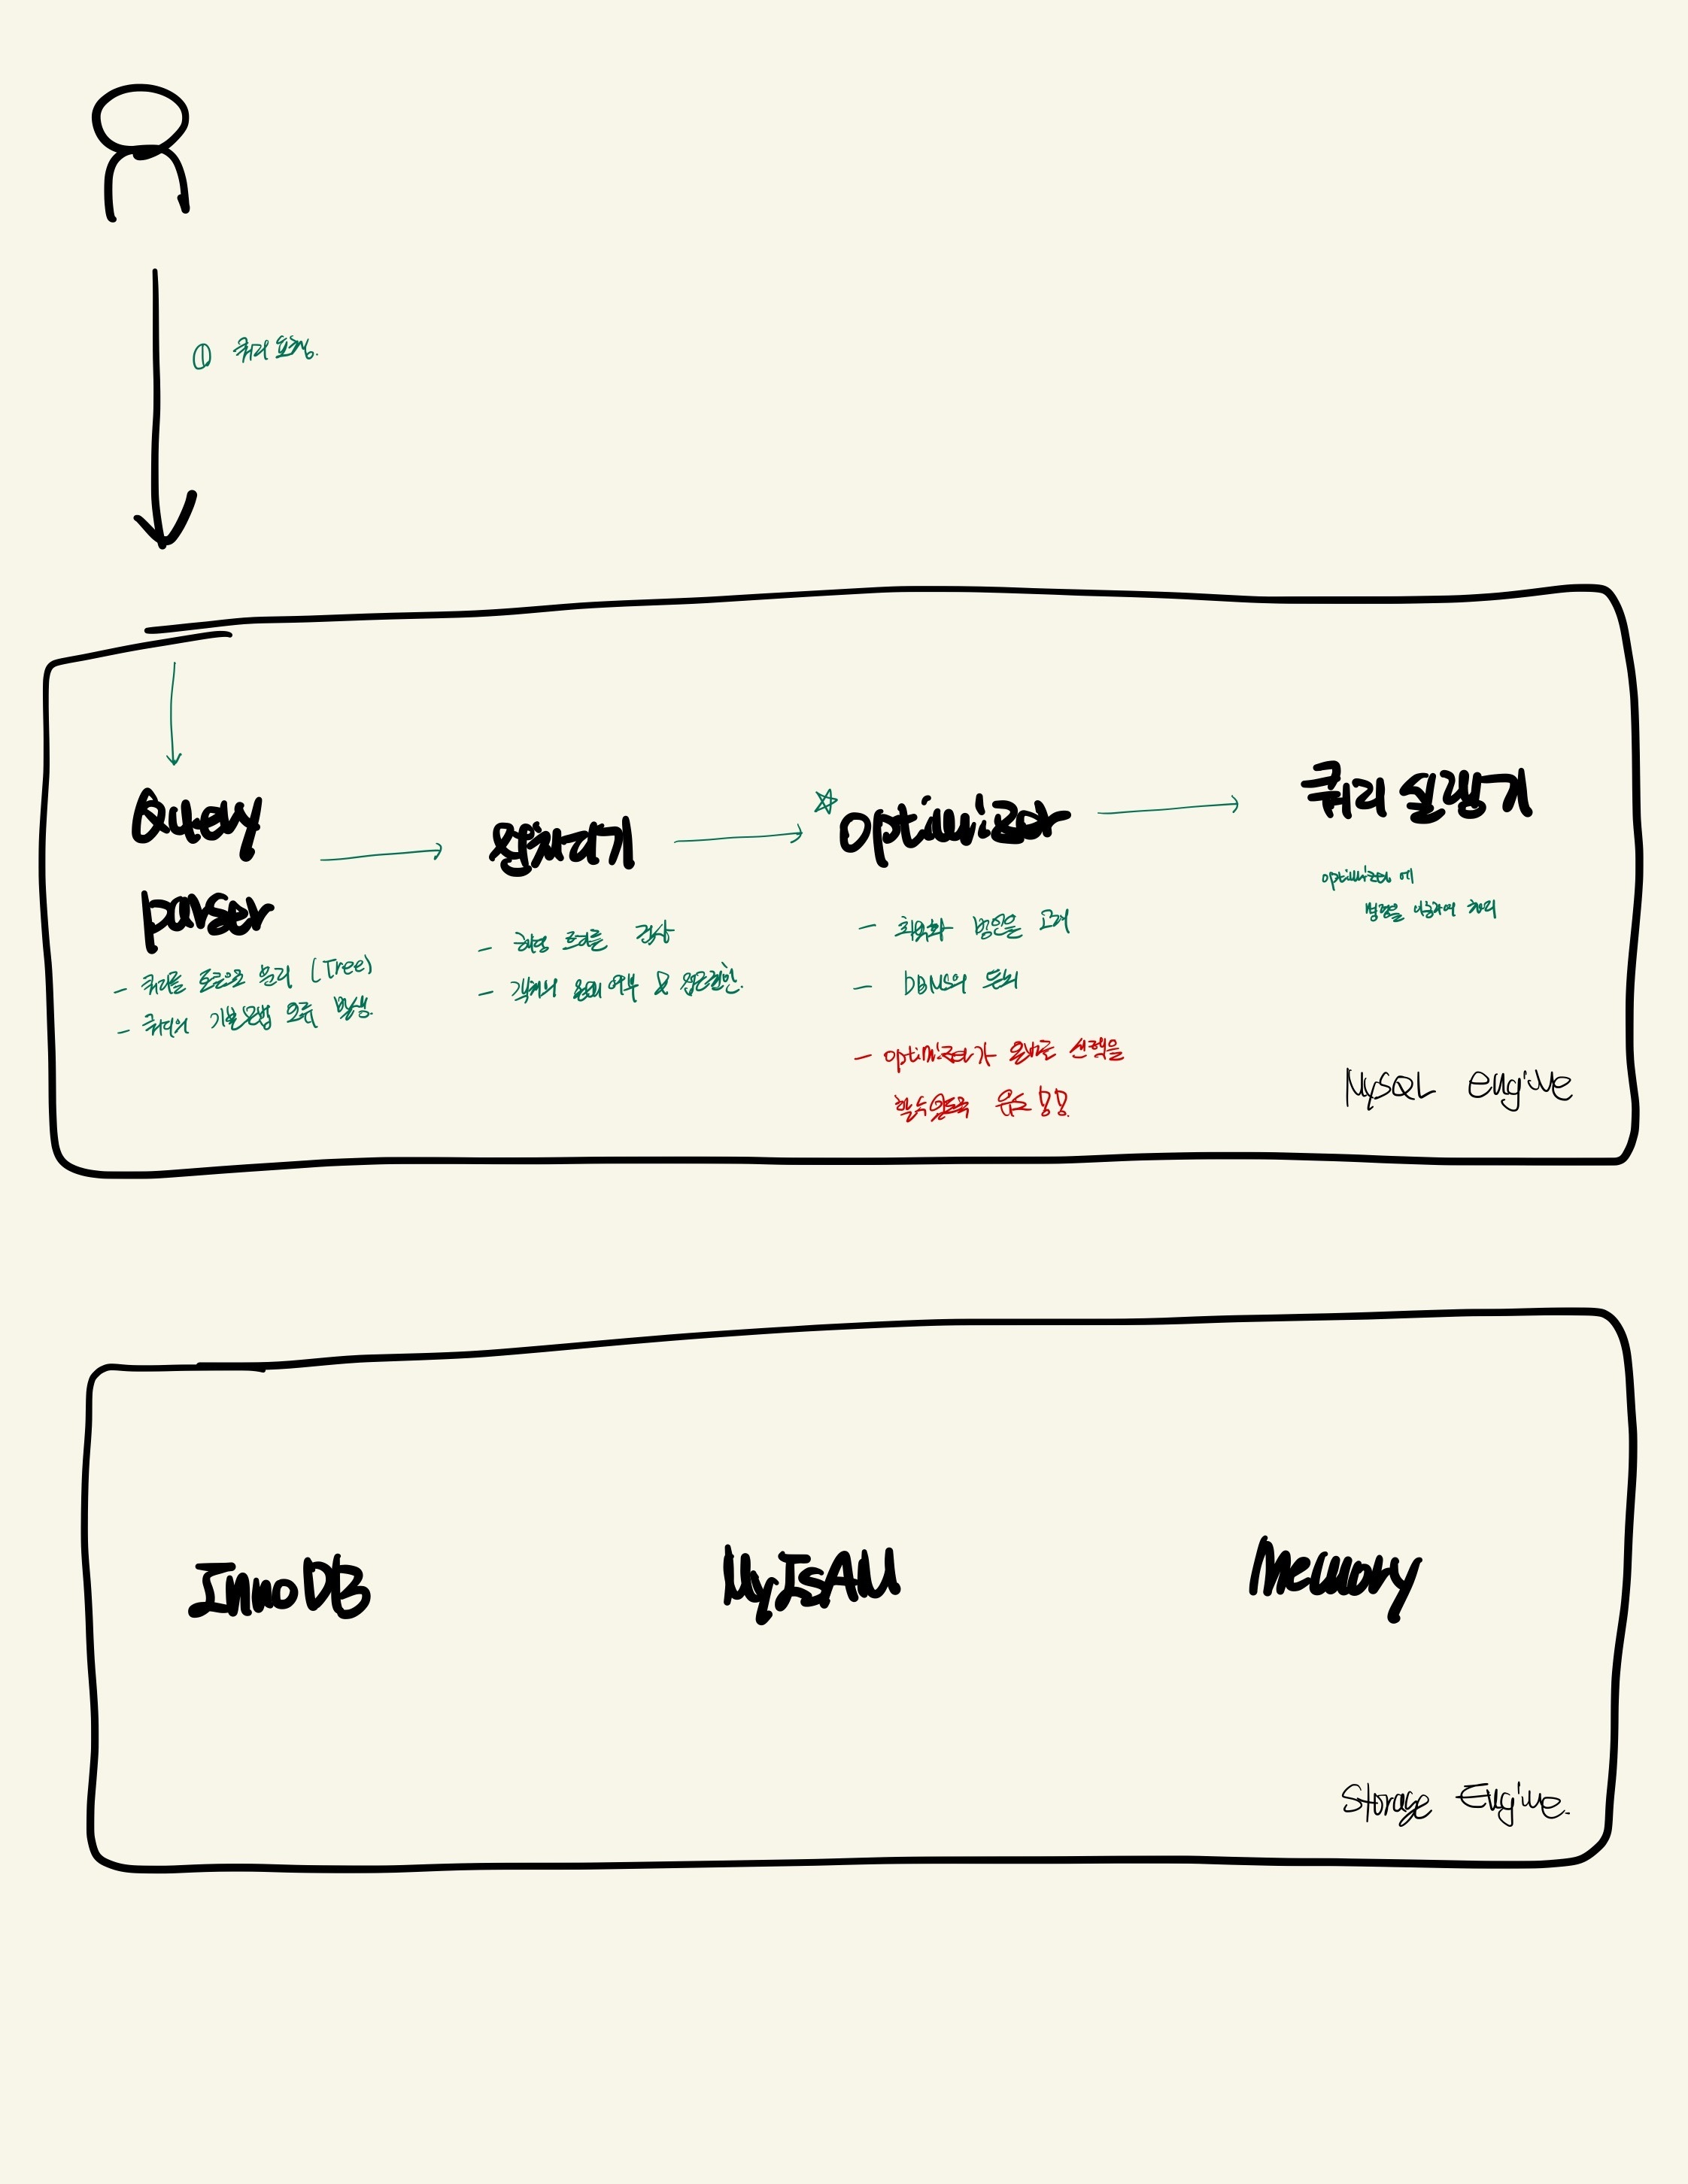 ① 쿼리 요청.
Query
parser
- 쿼리를 토큰으로 분리 (Tree)
- 쿼리의 기본문법 오류 발생.
전처리기
- 해당 트리를 검사
- 객체의 존재 여부 & 접근권한.
☆ optimizor
- 최적화 방안을 고려
- DBMS의 두뇌
- optimizer가 올바른 선택을
할수있도록 유도
쿼리 실행기
optimizer에
처리
MySQL engine
InnoDB
MyIsAM
Memory
Storage Engine.